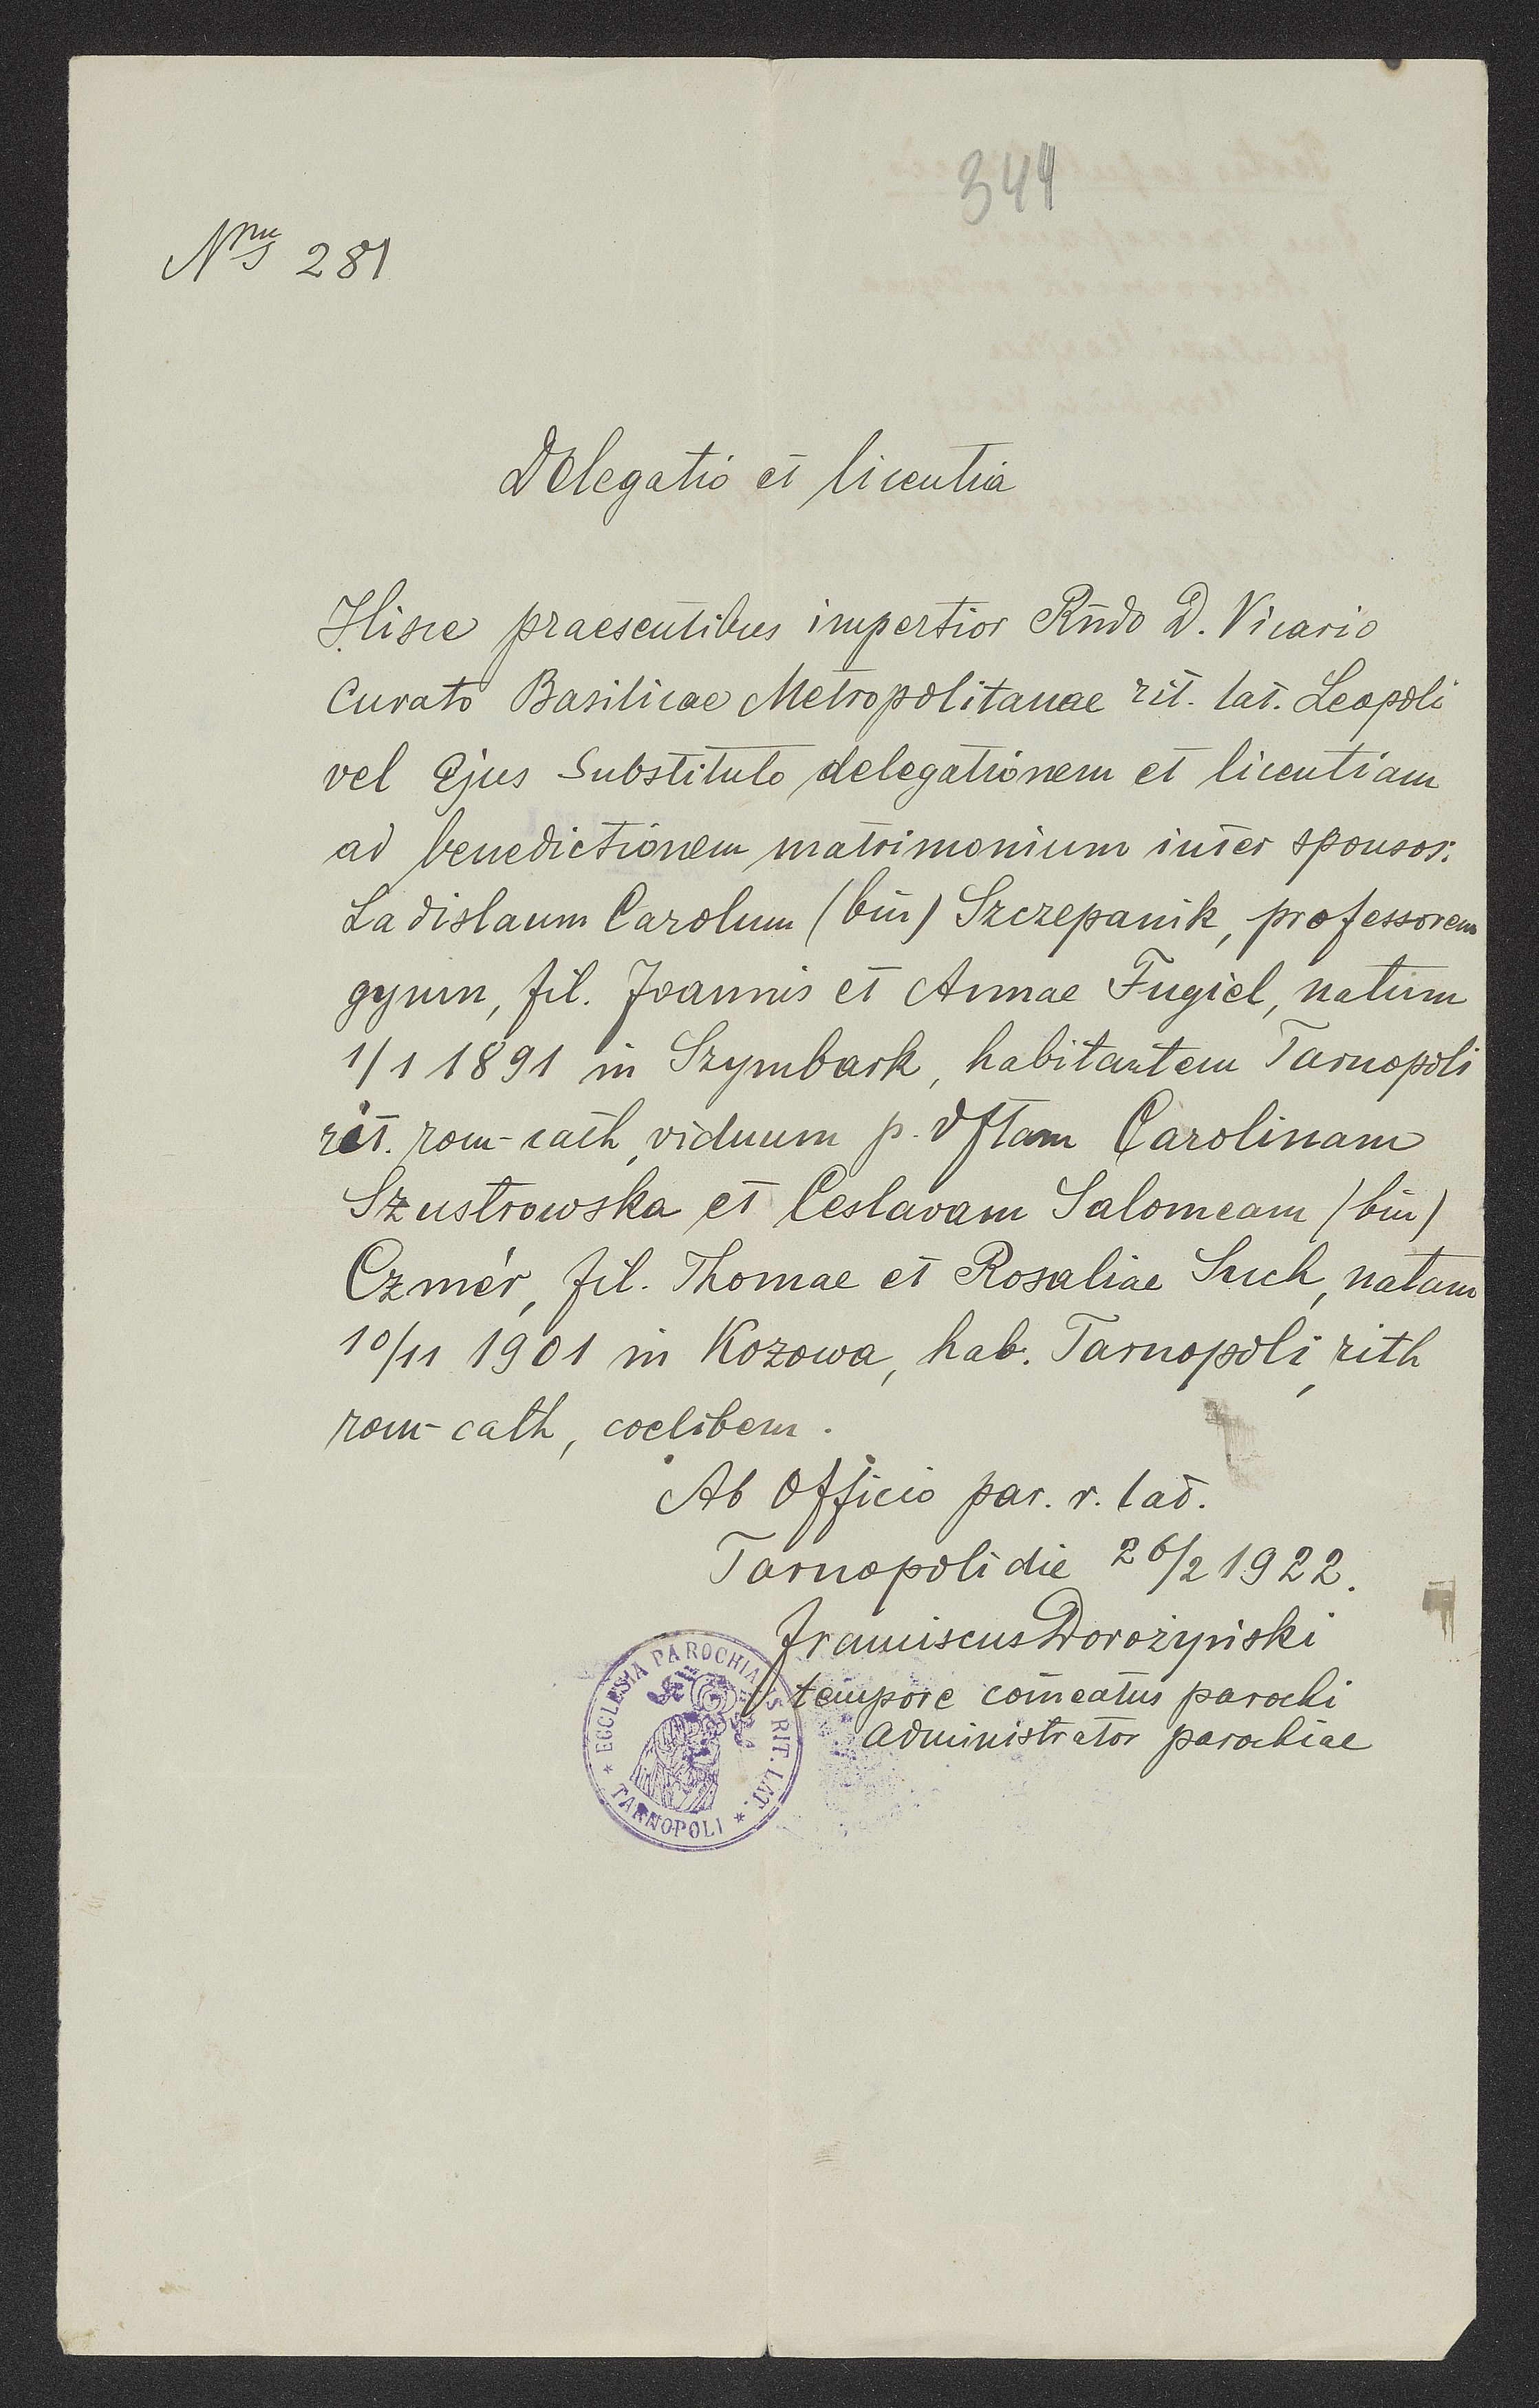 344
Nrus 281
Delegatio et licentia
Hisce praesentibus impertior Rndo D. Vicario
Curato Basilicae Metropolitanae rit. lat. Leopoli
vel Ejus Substituto delegationem et licentiam
ad benedictionem matrimonium inter sponsos:
Ladislaum Carolum (bin) Szczepanik, professorem
gymn, fil. Joannis et Annae Fugiel, natum
1/1 1891 in Szymbark, habitantem Tarnopoli
rit. rom-cath, viduum p. dftam Carolinam
Szustrowska et Ceslavam Salomeam (bin)
Czmér, fil. Thomae et Rosaliae Such, natam
10/11 1901 in Kozowa, hab. Tarnopoli, rith
rom-cath, coelibem.
Ab Officio par. r. lat.
Tarnopoli die 26/2 1922.
Franciscus Dorożyński
tempore comeatus parochi
administrator parochiae
* ECCLESIA PAROCHIALIS RIT. LAT. *
TARNOPOLI